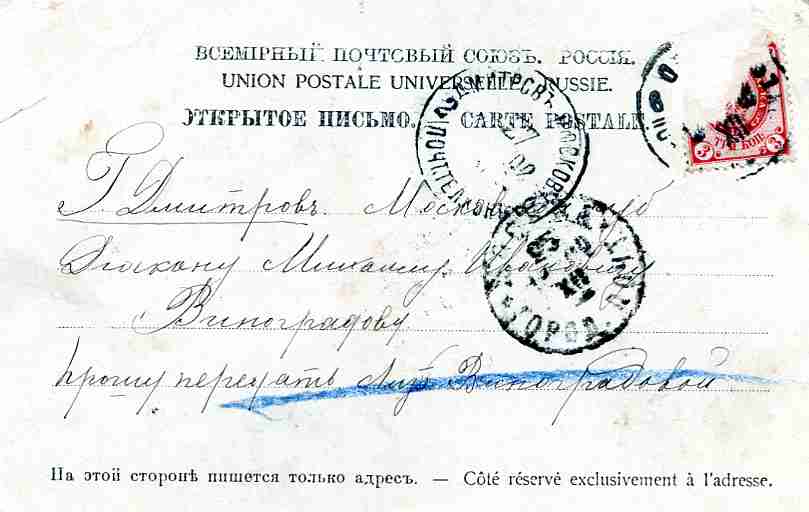 ВСЕМІРНЫЙ ПОЧТОВЫЙ СОЮЗЪ. РОССІЯ.
UNION POSTALE UNIVERSELLE. RUSSIE.
ОТКРЫТОЕ ПИСЬМО. — CARTE POSTALE
ТРИ КОП.
3
3
Г. Дмитровъ. Москов губ
Діакону Михаилу Ивановичу
Виноградову
прошу передать Виноградовой
ДМИТРОВЪ МОСКОВ.
ПОЧТ. ТЕЛ. КОН.
ГОРОД.
XII
На этой сторонѣ пишется только адресъ. — Côté réservé exclusivement à l'adresse.